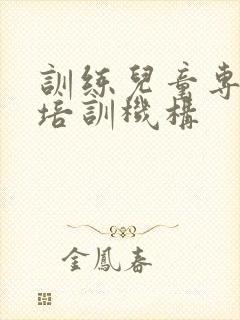 訓練兒童專
培訓機構
金鳳春